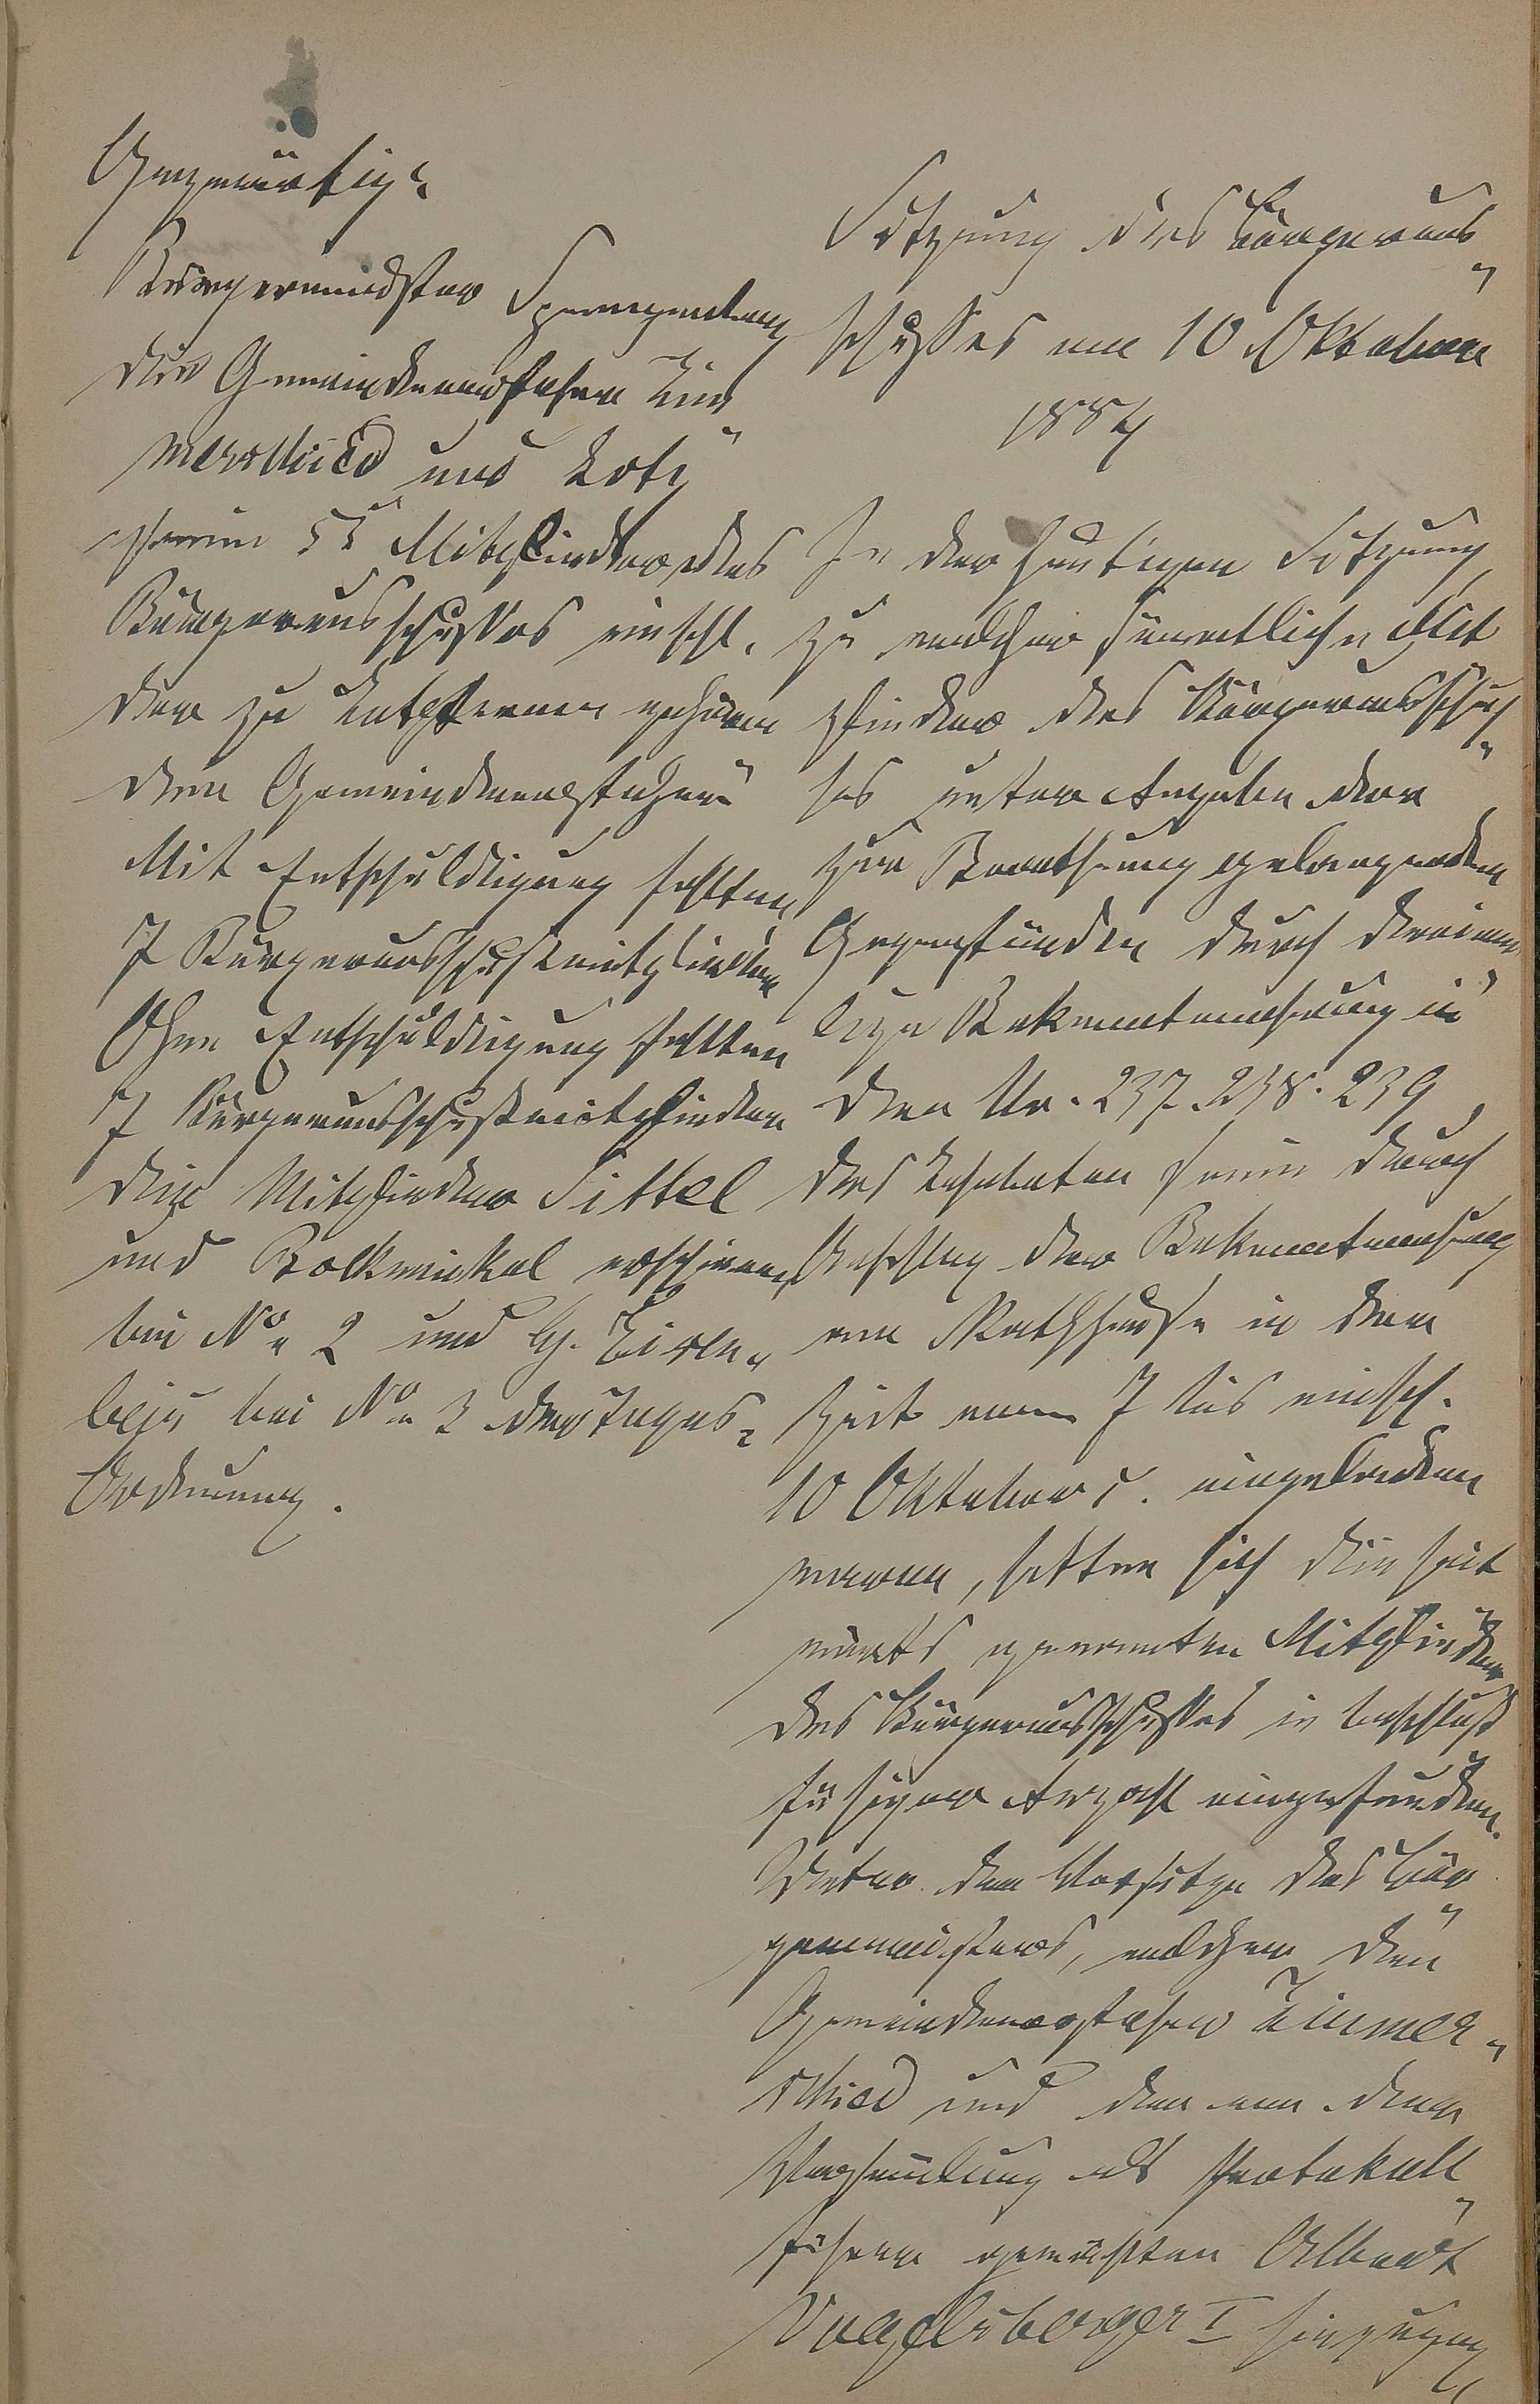 Gegenwärtig:
Bürgermeister Spengemann
die Gemeindevorsteher Zim„
merschied und Lotz
sowie 55 Mitglieder des
Bürgerausschusses einschl.
der zu Letzteren gehören
den Gemeindevorsteher
Mit Entschuldigung fehlten
7 Bürgerausschußmitglieder
Ohne Entschuldigung fehlten
7 Bürgerausschußmitglieder
die Mitglieder Sittel
und erschienen
bei No 2 und G. Eisen„
beis bei No 3 der Tages„
Ordnung.
Sitzung des Bürgeraus„
schusses am 10 Oktober
1884
In der heutigen Sitzung
zu welcher sämmtliche Mit
glieder des Bürgerausschus„
ses unter Angabe der
zur Berathung gelangenden
Gegenstände durch dreima„
lige Bekanntmachung in
den Nr. 237. 238. 239
des sowie durch
Anschlag der Bekanntmachung
am Rathhause in der
Zeit vom 7 bis einsch.
10 Oktober c. eingeladen
waren, hatten sich die seit
wärts genannten Mitglieder
des Bürgerausschusses in beschluß
fähiger Anzahl eingefunden.
Unter dem Vorsitze des Bür„
germeisters, welcher den
Gemeindevorsteher Zimmer„
schied und den von der
Versammlung als Protokoll„
führer gewählten Albert
Vogelsberger I hinzuzog„